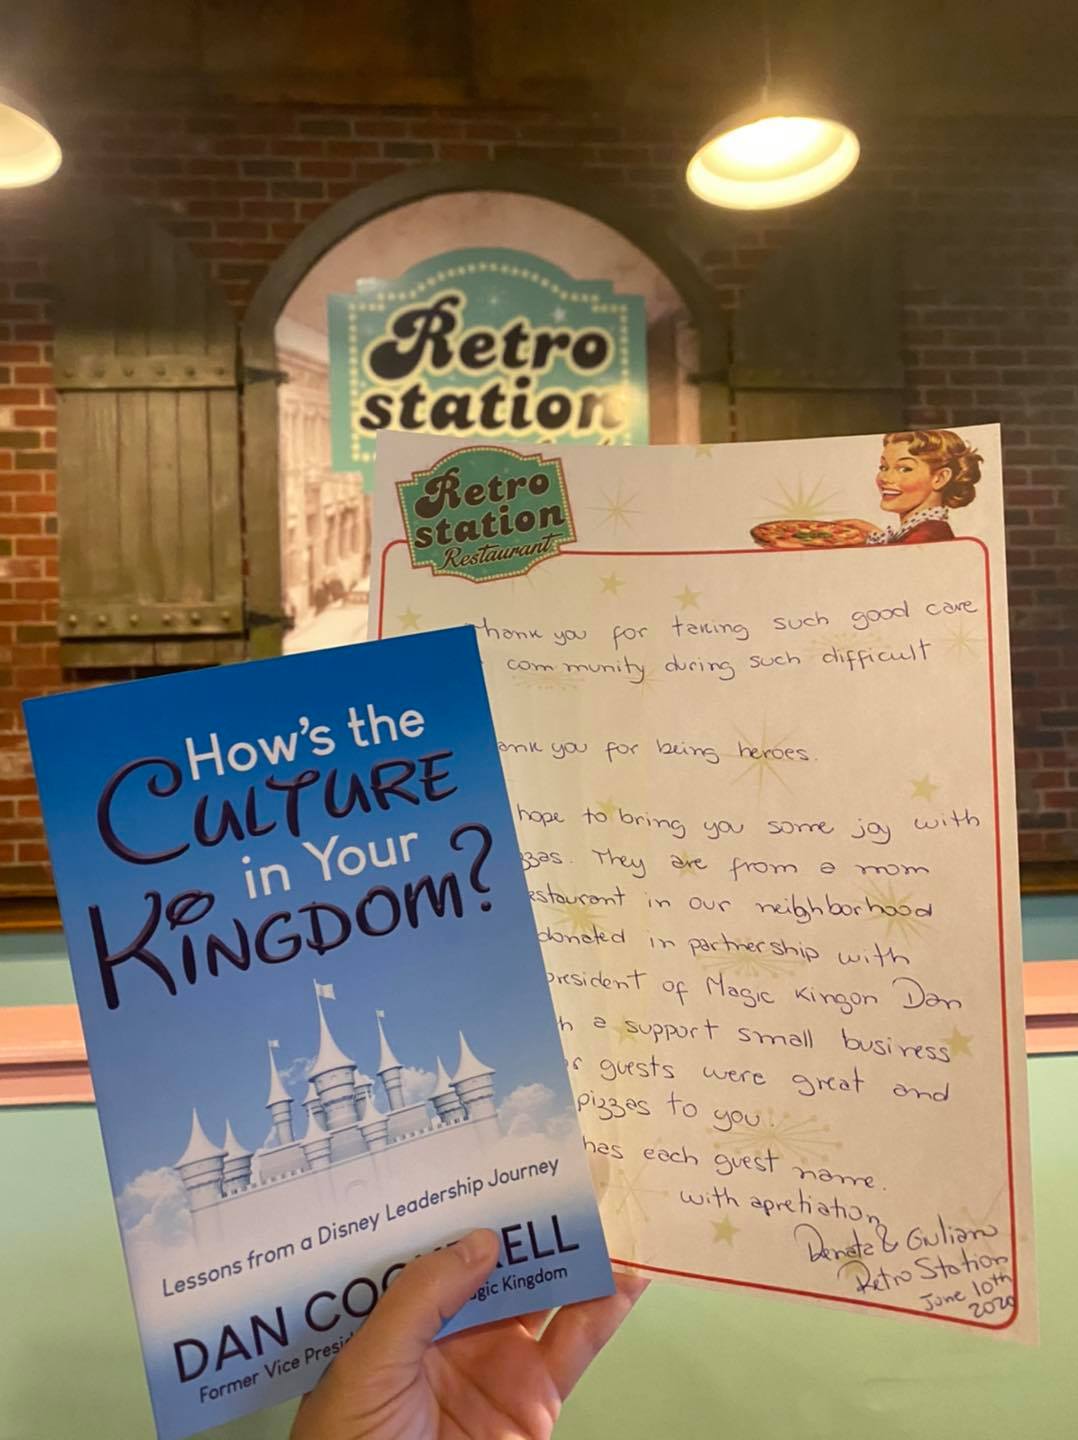 Retro
station
Retro
station
Restaurant
Thank you for taking such good care
community during such difficult
ank you for being heroes.
hope to bring you some joy with
zzas. They are from a mom
estaurant in our neighborhood
donated in partnership with
president of Magic Kingon Dan
h a support small business
guests were great and
pizzas to you.
has each guest name.
with apretiation
Renata & Giuliano
Retro Station
June 10th
2020
How's the
CULTURE
in Your
KINGDOM?
Lessons from a Disney Leadership Journey
DAN COCKERELL
Former Vice Presi gic Kingdom